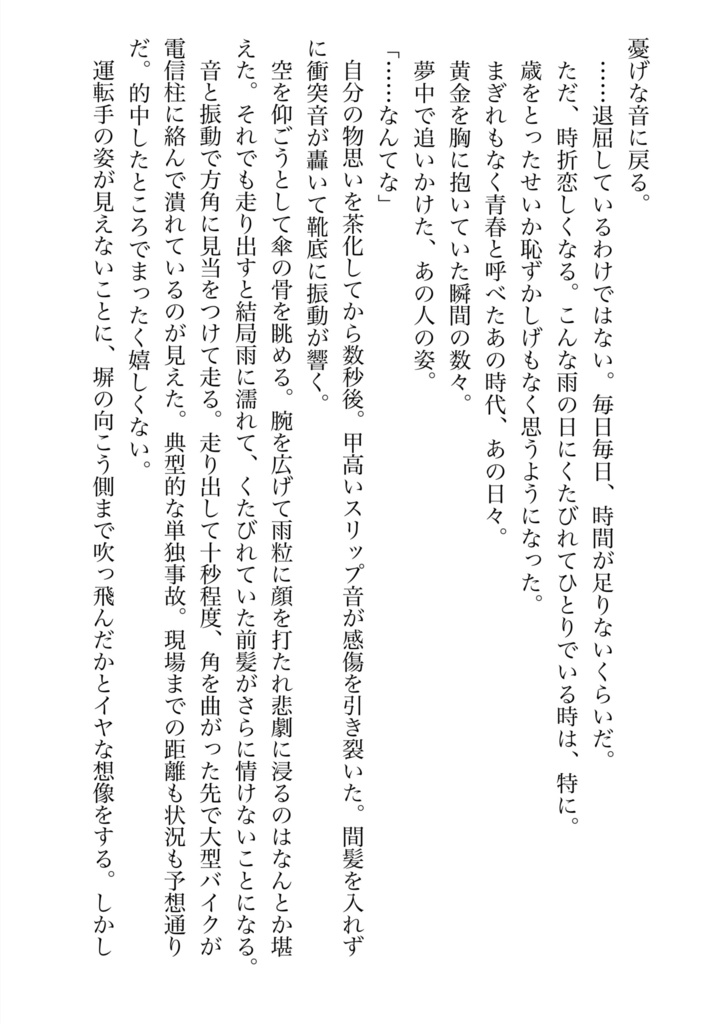 憂げな音に戻る。
……退屈しているわけではない。毎日毎日、時間が足りないくらいだ。
ただ、時折恋しくなる。こんな雨の日にくたびれてひとりでいる時は、特に。
歳をとったせいか恥ずかしげもなく思うようになった。
まぎれもなく青春と呼べたあの時代、あの日々。
黄金を胸に抱いていた瞬間の数々。
夢中で追いかけた、あの人の姿。
「……なんてな」
自分の物思いを茶化してから数秒後。甲高いスリップ音が感傷を引き裂いた。間髪を入れず
に衝突音が轟いて靴底に振動が響く。
空を仰ごうとして傘の骨を眺める。腕を広げて雨粒に顔を打たれ悲劇に浸るのはなんとか堪
えた。それでも走り出すと結局雨に濡れて、くたびれていた前髪がさらに情けないことになる。
音と振動で方角に見当をつけて走る。走り出して十秒程度、角を曲がった先で大型バイクが
電信柱に絡んで潰れているのが見えた。典型的な単独事故。現場までの距離も状況も予想通り
だ。的中したところでまったく嬉しくない。
運転手の姿が見えないことに、塀の向こう側まで吹っ飛んだかとイヤな想像をする。しかし